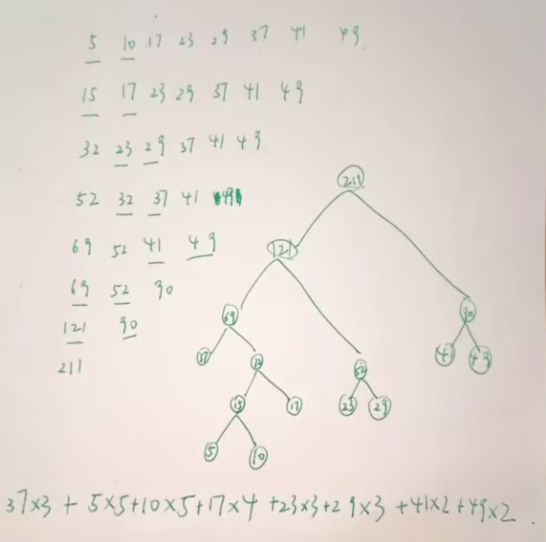 5 10 17 23 29 37 41 49
15 17 23 29 37 41 49
32 23 29 37 41 49
52 32 37 41 49
69 52 41 49
69 52 90
121 90
211
211
121
69 90
37 32 52 41 49
15 17 23 29
5 10
37×3 + 5×5+10×5+17×4 +23×3+29×3 +41×2+49×2